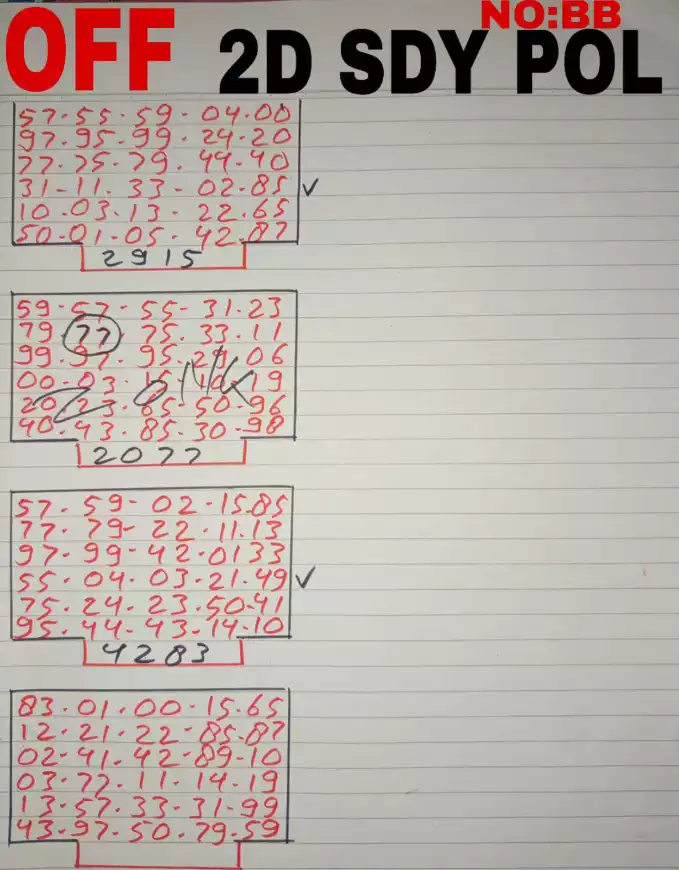 NO:BB
OFF 2D SDY POL
57.55.59.04.00
97.95.99.24.20
77.75.79.44.40
31-11.33-02.85 ✓
10.03.13-22.65
50.01.05.42.87
2915
59.57-55-31.23
79 77 75.33.11
99.97.95.29.06
00-03.15-10.19
20.23.65-50.96
40.43.85.30-98
ZONK
2077
57.59-02.15.85
77.79-22.11.13
97.99-42.0133
55.04.03.21.49 ✓
75.24.23.50.41
95.44-43.14.10
4283
83.01.00.15.65
12.21.22-85.87
02-41.42-89-10
03.77.11.14.19
13.57.33.31-99
43.97.50.79.59